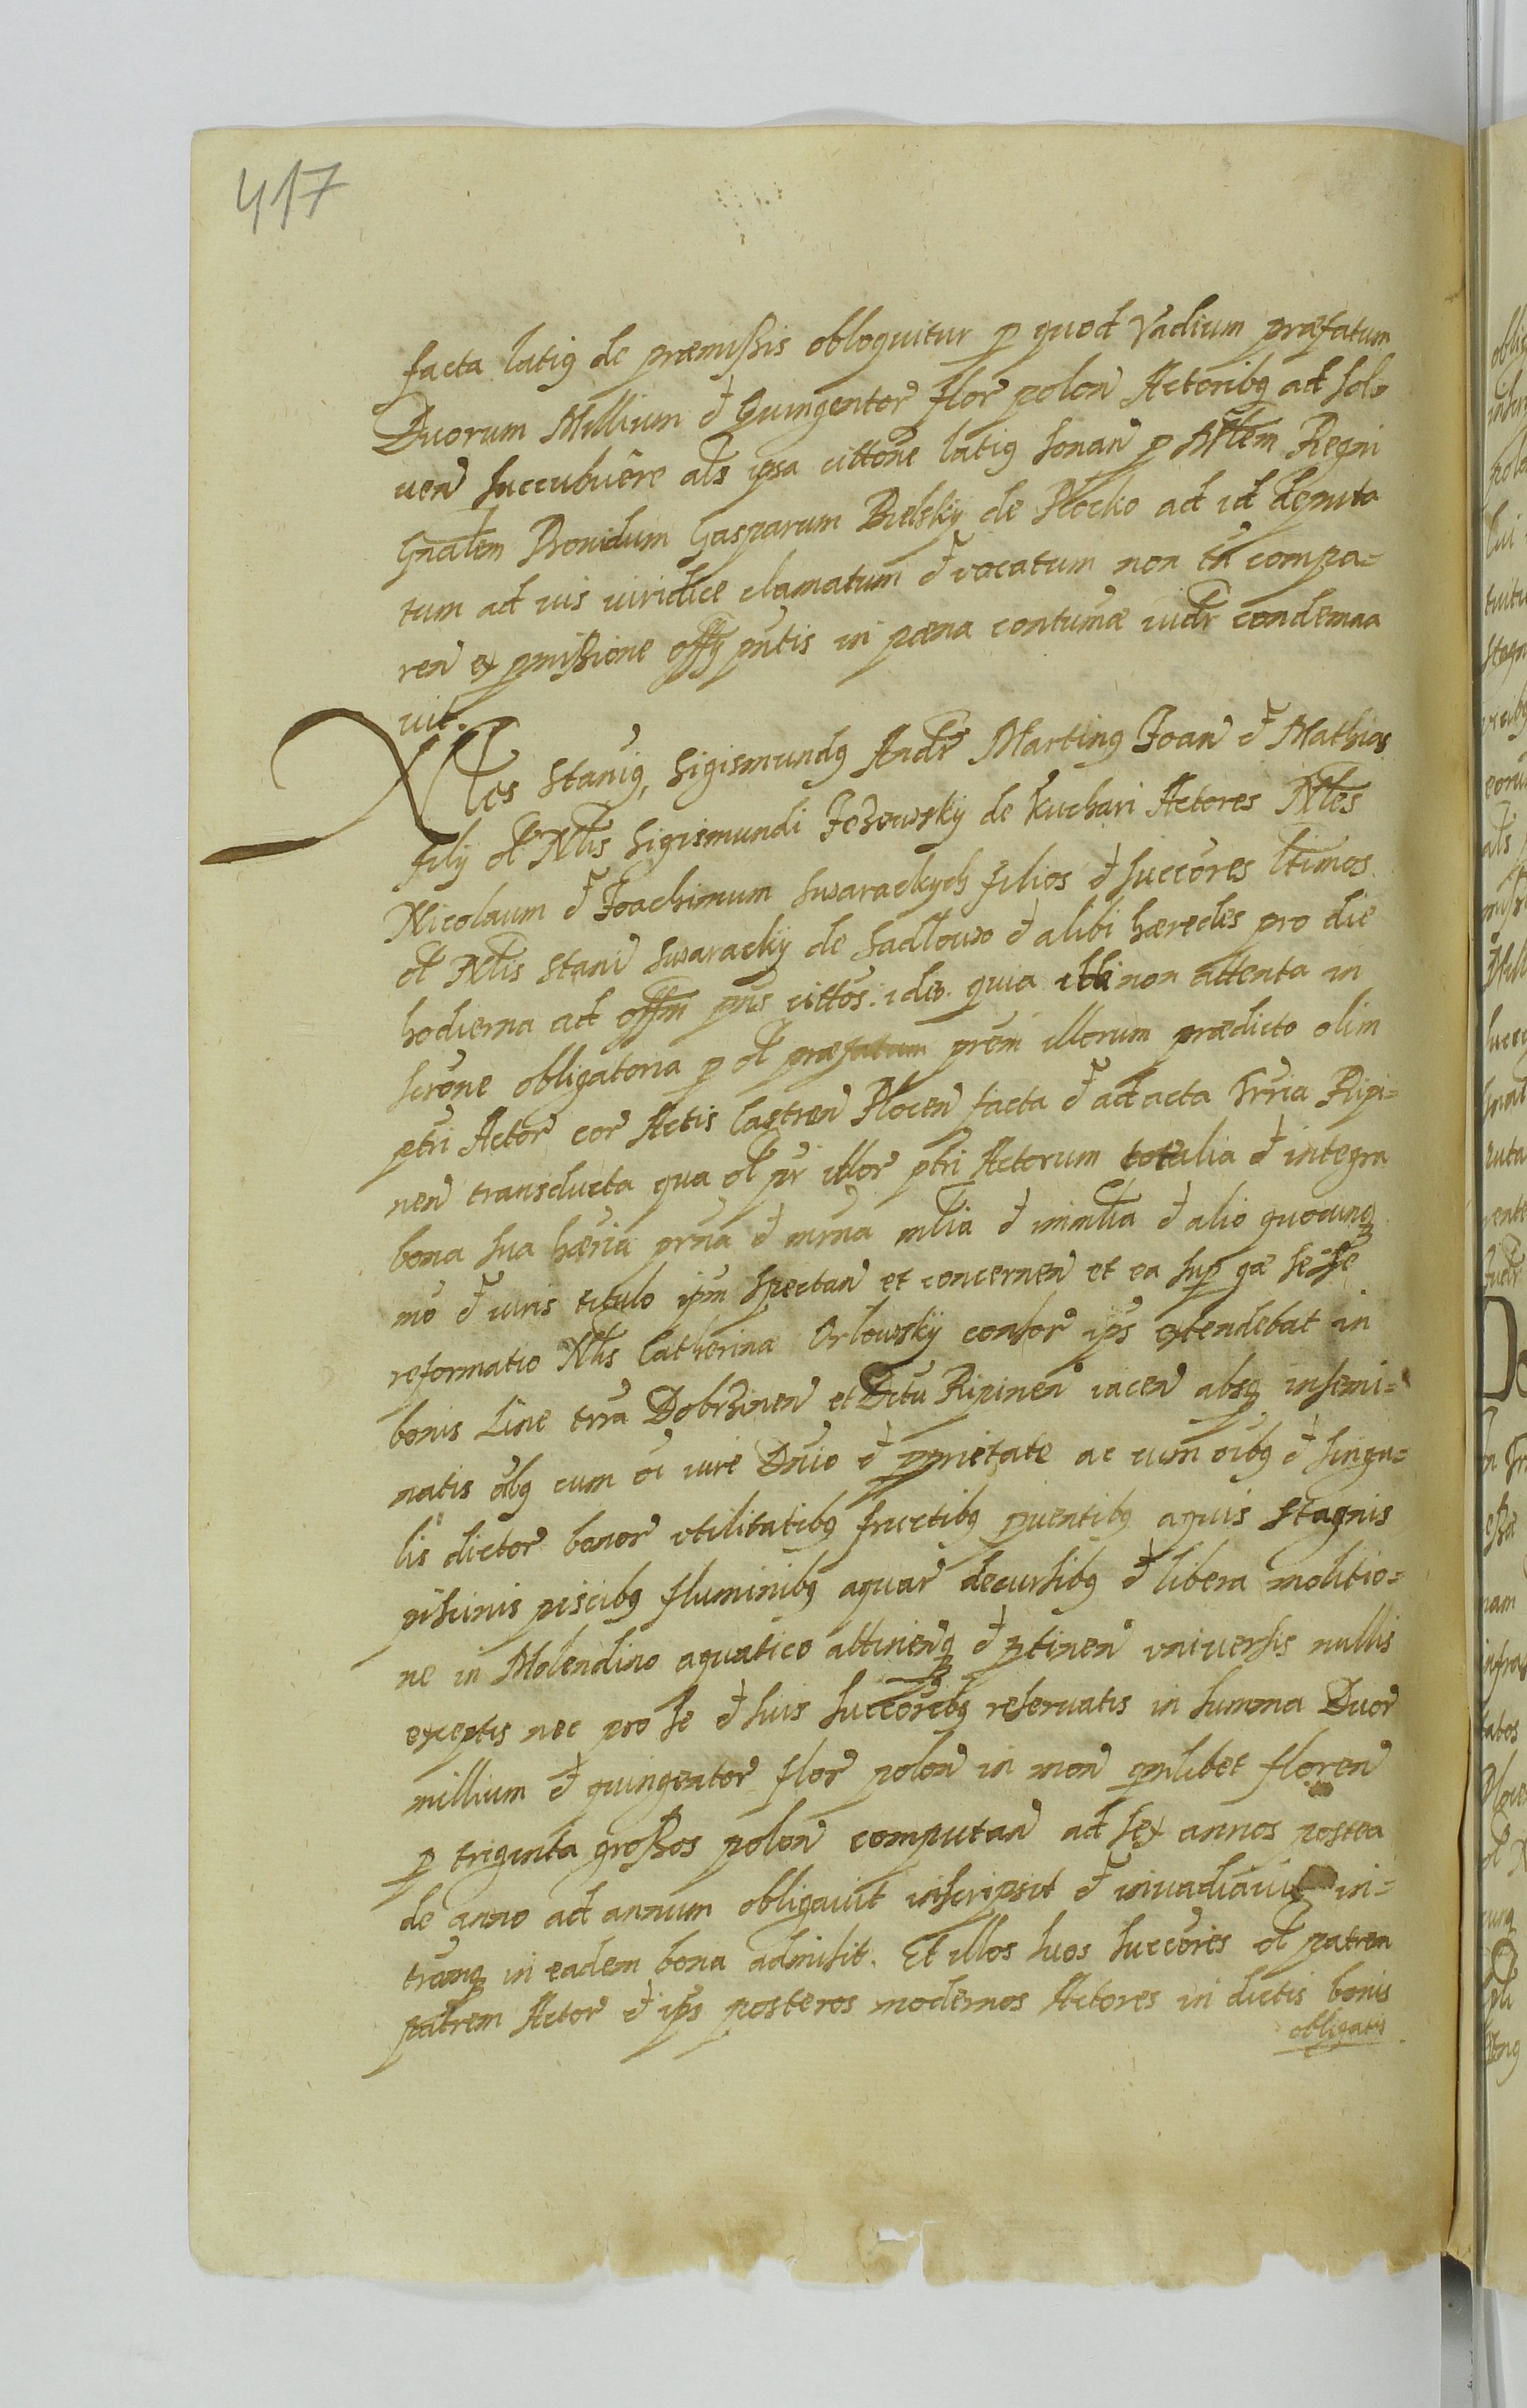 417
facta latig de præmissis obloquitur p quod Vadium præfatum
Duorum Millium et Quingentor flor polon Actoribg ad sol
uen succubuere als ipsa cittone latig sonan p Mrlem Regni
Gnalem Prouidum Gasparum Bielsky de Plocko ad id deputa
tum ad ius iuridice clamatum et vocatum non tn compa=
ren ex pmissione offy pntis in pœna contumæ iudr condemna
uit.
Nles Stanig, Sigismundg Andr Marting Joan et Mathias
filij ol Nlis Sigismundi Jozewsky de Kuchari Actores Nles
Nicolaum et Joachimum Swarackych filios et succores ltimos
ol Nlis Stani Swaracky de Sadlowo et alibi hæredes pro die
hodierna ad offm pns cittos. ideo. quia non attenta in
scrone obligatoria p ol præfatum prem illorum prædicto olim
ptri Actor cor Actis Castren Plocen facta et ad acta trria Ripi=
nen transducta qua ol pr illor ptri Actorum totalia et integra
bona sua hæria prna et mrna mlia et inmlia et alio quocung
mo et iuris titulo ipm spectan et concernen et ea sup quæ sese
reformatio Nlis Catherina Orlowsky consor ips extendebat in
bonis Line trra Dobrzinen et Dctu Ripinen iacen absq insemi=
natis olbg cum oi iure Dnio et pprietate ac cum oibg et singu=
lis dictor bonor vtilitatibg fructibg puentibg aquis stagnis
piscinis piscibg fluminibg aquar decursibg et libera molitio=
ne in Molendino aquatico attinenq et ptinen vniuersis nullis
exceptis nec pro se et suis succoribg reseruatis in summa Duor
millium et quingentor flor polon in mon qmlibet floren
p triginta grossos polon computan ad sex annos postea
de anno ad annum obligauit inscripsit et inuadiauit in=
tromq in eadem bona admisit. Et illos suos succores ol patrem
patrem Actor et ips posteros modernos Actores in dictis bonis
obligatis